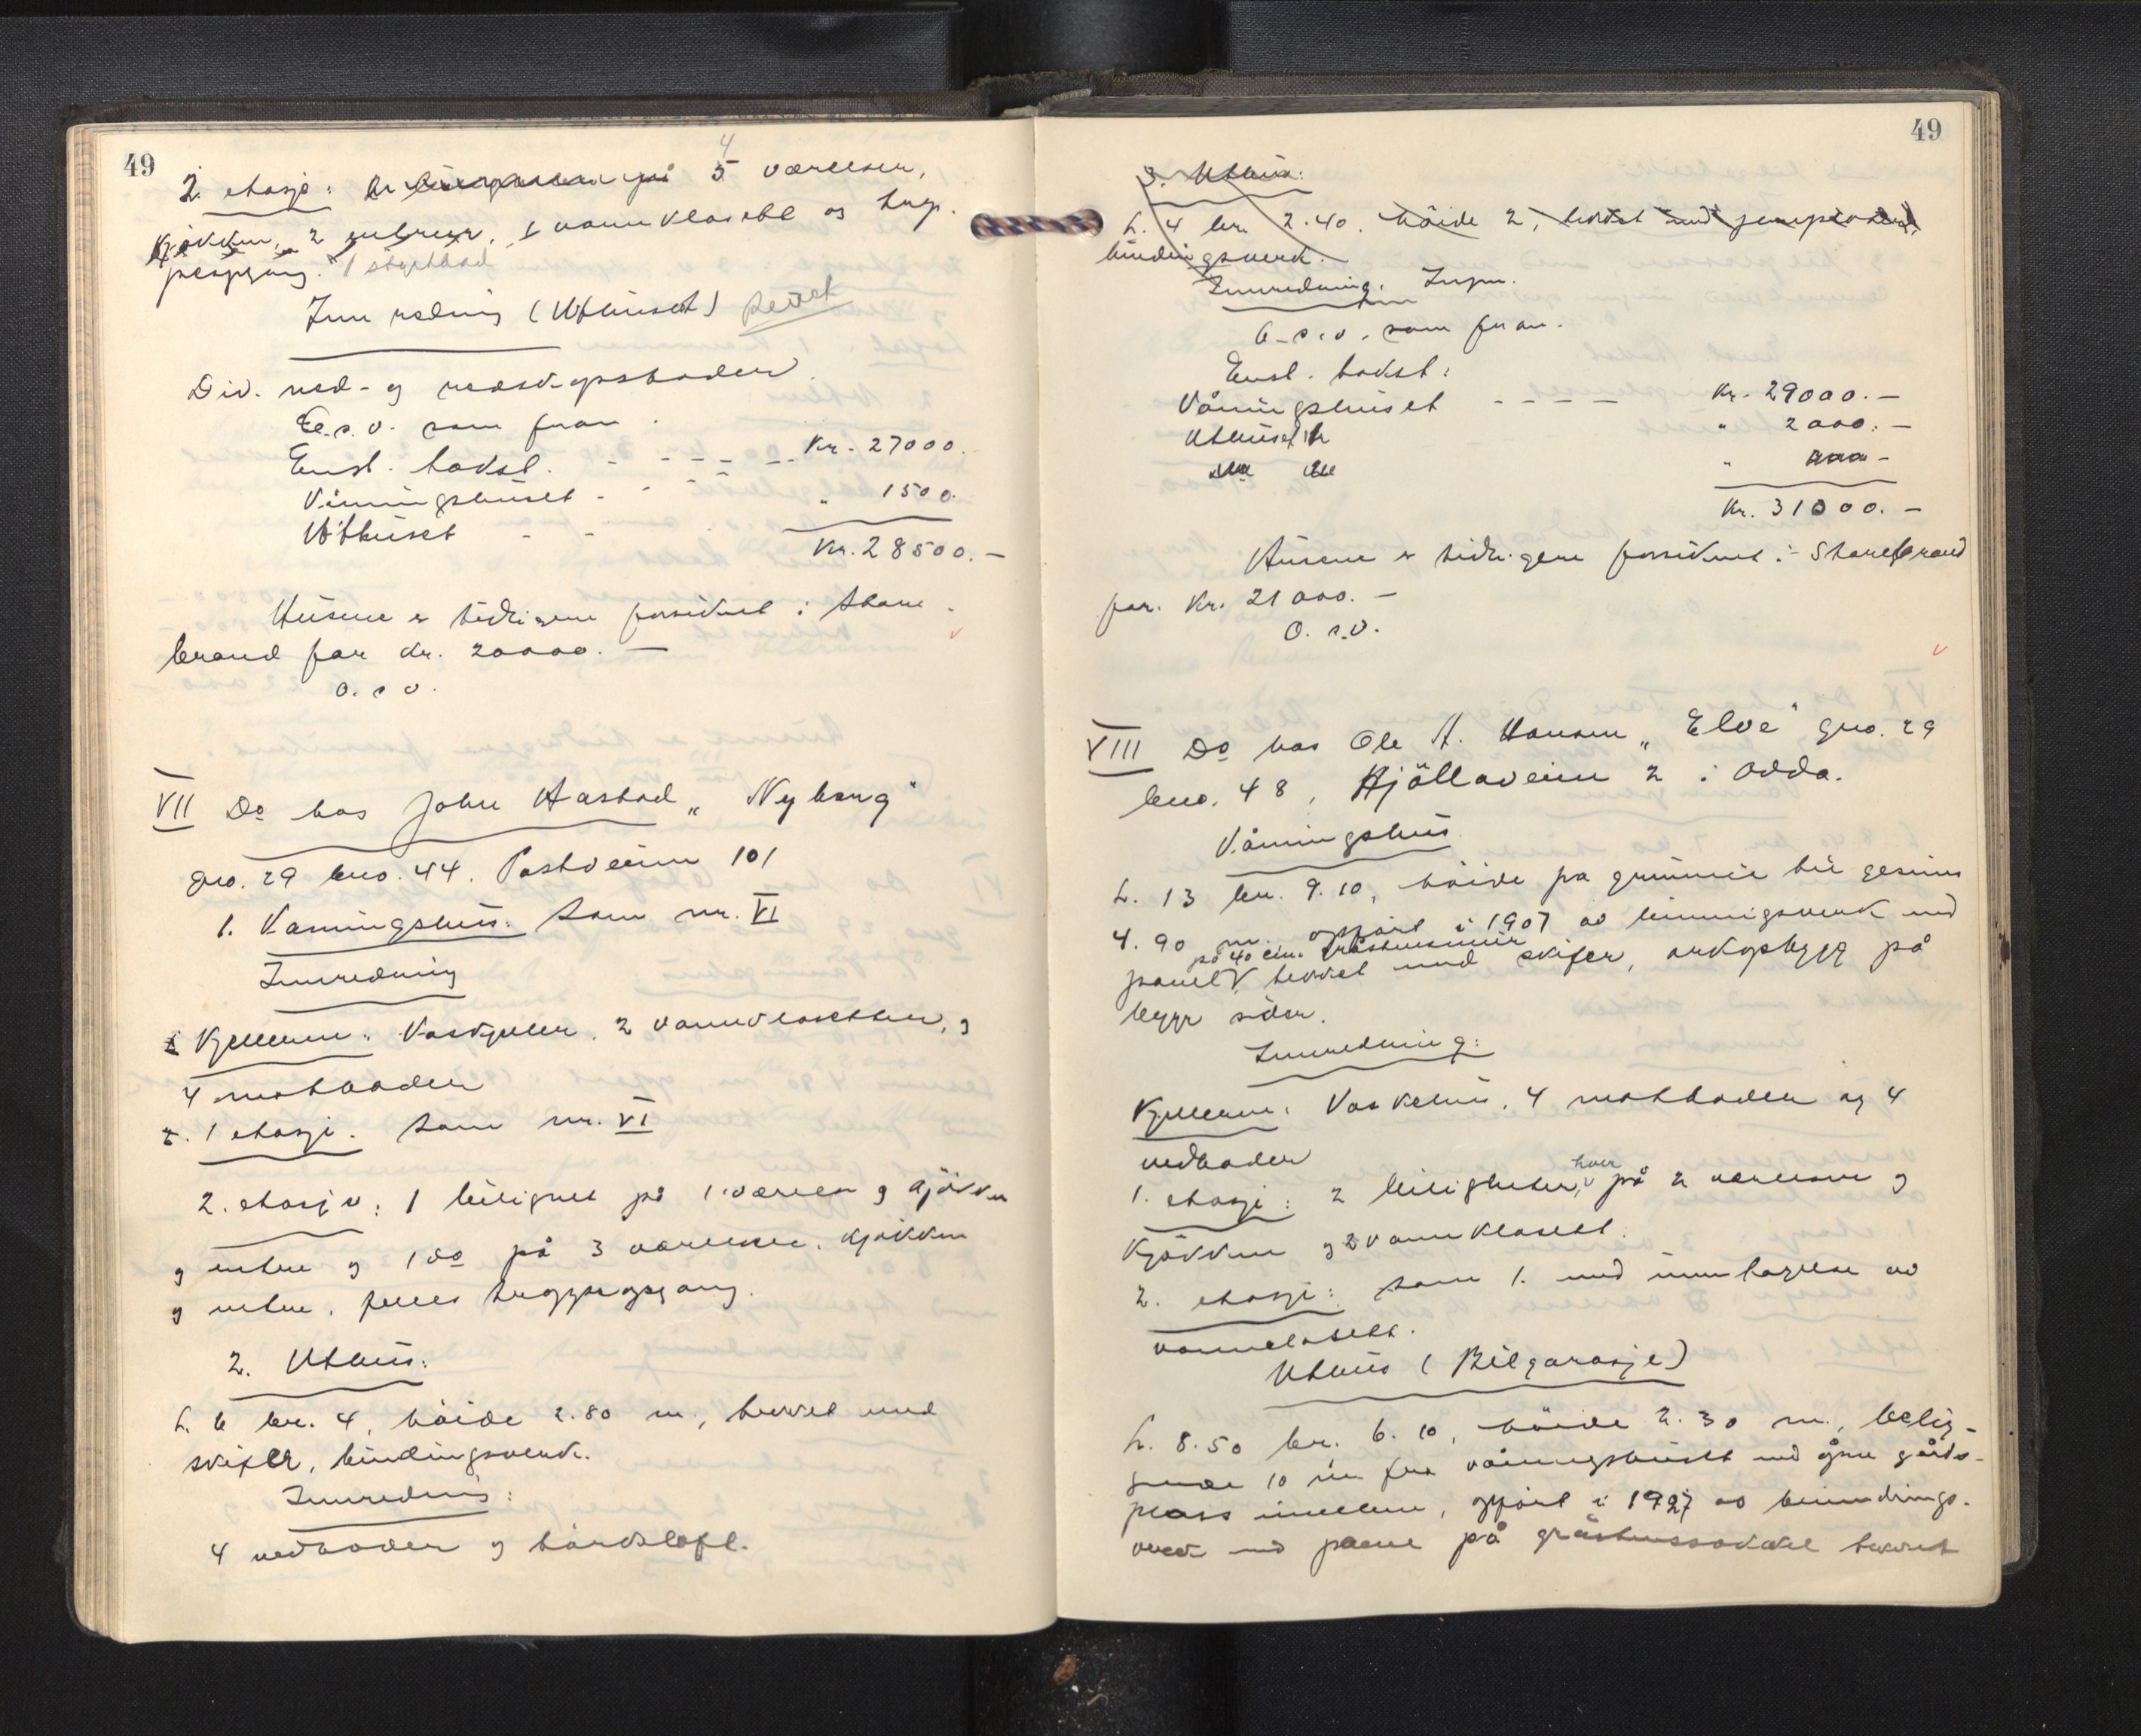 49
4
2. etasje: 5 værelser,
Kjøkken, 2 entreer, 1 vannklosett og trap-
peopgang. 1 styrtbad
Innredning (Uthuset)
Div. ved- og redskapsboder.
O.s.v. som foran.
Enst. takst.
Våningshuset - - - - Kr. 27000.
Uthuset - - " 1500.
Kr. 28500.-
Husene er tidligere forsikret i Store-
brand for kr. 20000.-
O.s.v.
VII Do hos John Aastad "Nyborg"
gno. 29 bno. 44. Postveien 101
1. Vaaningshus: Som nr. VI
Innredning
Kjelleren: Vaskekjeller, 2 vannklosetter, og
4 matboder
1 etasje. Som nr. VI
2. etasje: 1 leilighet på 1 værelse og kjøkken
og entre og 1 do på 3 værelser, kjøkken
og entre, felles trappeopgang.
2. Uthus:
L. 6 br. 4, höide 2.80 m., tekket med
skifer, bindingsverk.
Innredning:
4 vedboder og tørkeloft.
49
3. Uthus:
L. 4 br. 2.40. höide 2, tekket med
bindingsverk.
Innredning. Ingen.
O.s.v. som foran.
Enst. takst:
Våningshuset - - - - Kr. 29000.-
Uthuset " 2000.-
Kr. 31000.-
Husene er tidligere forsikret i Storebrand
for Kr. 21000.-
O.s.v.
VIII Do hos Ole A. Hansen "Elve" gno. 29
bno. 48, Hjöllaveien 2 i Odda.
Våningshus
L. 13 br. 9.10, höide fra grunnmur til gesims
4.90 m. opført i 1907 av binningsverk med
på 40 cm. gråstensmur
panel, tekket med skifer, arkopbygg på
begge sider.
Innredning:
Kjelleren: Vaskehus, 4 matboder og 4
vedboder
hver
1. etasje: 2 leiligheter, på 2 værelser og
Kjökken og 2 vannklosett.
2. etasje: som 1. med unntagelse av
vannklosett.
Uthus (Bilgarasje)
L. 8.50 br. 6.10, höide 2.30 m., belig-
gende 10 m fra våningshuset med åpen gårds-
plass imellem, opført i 1927 av bindings-
verk med panel på gråstenssokkel tekket